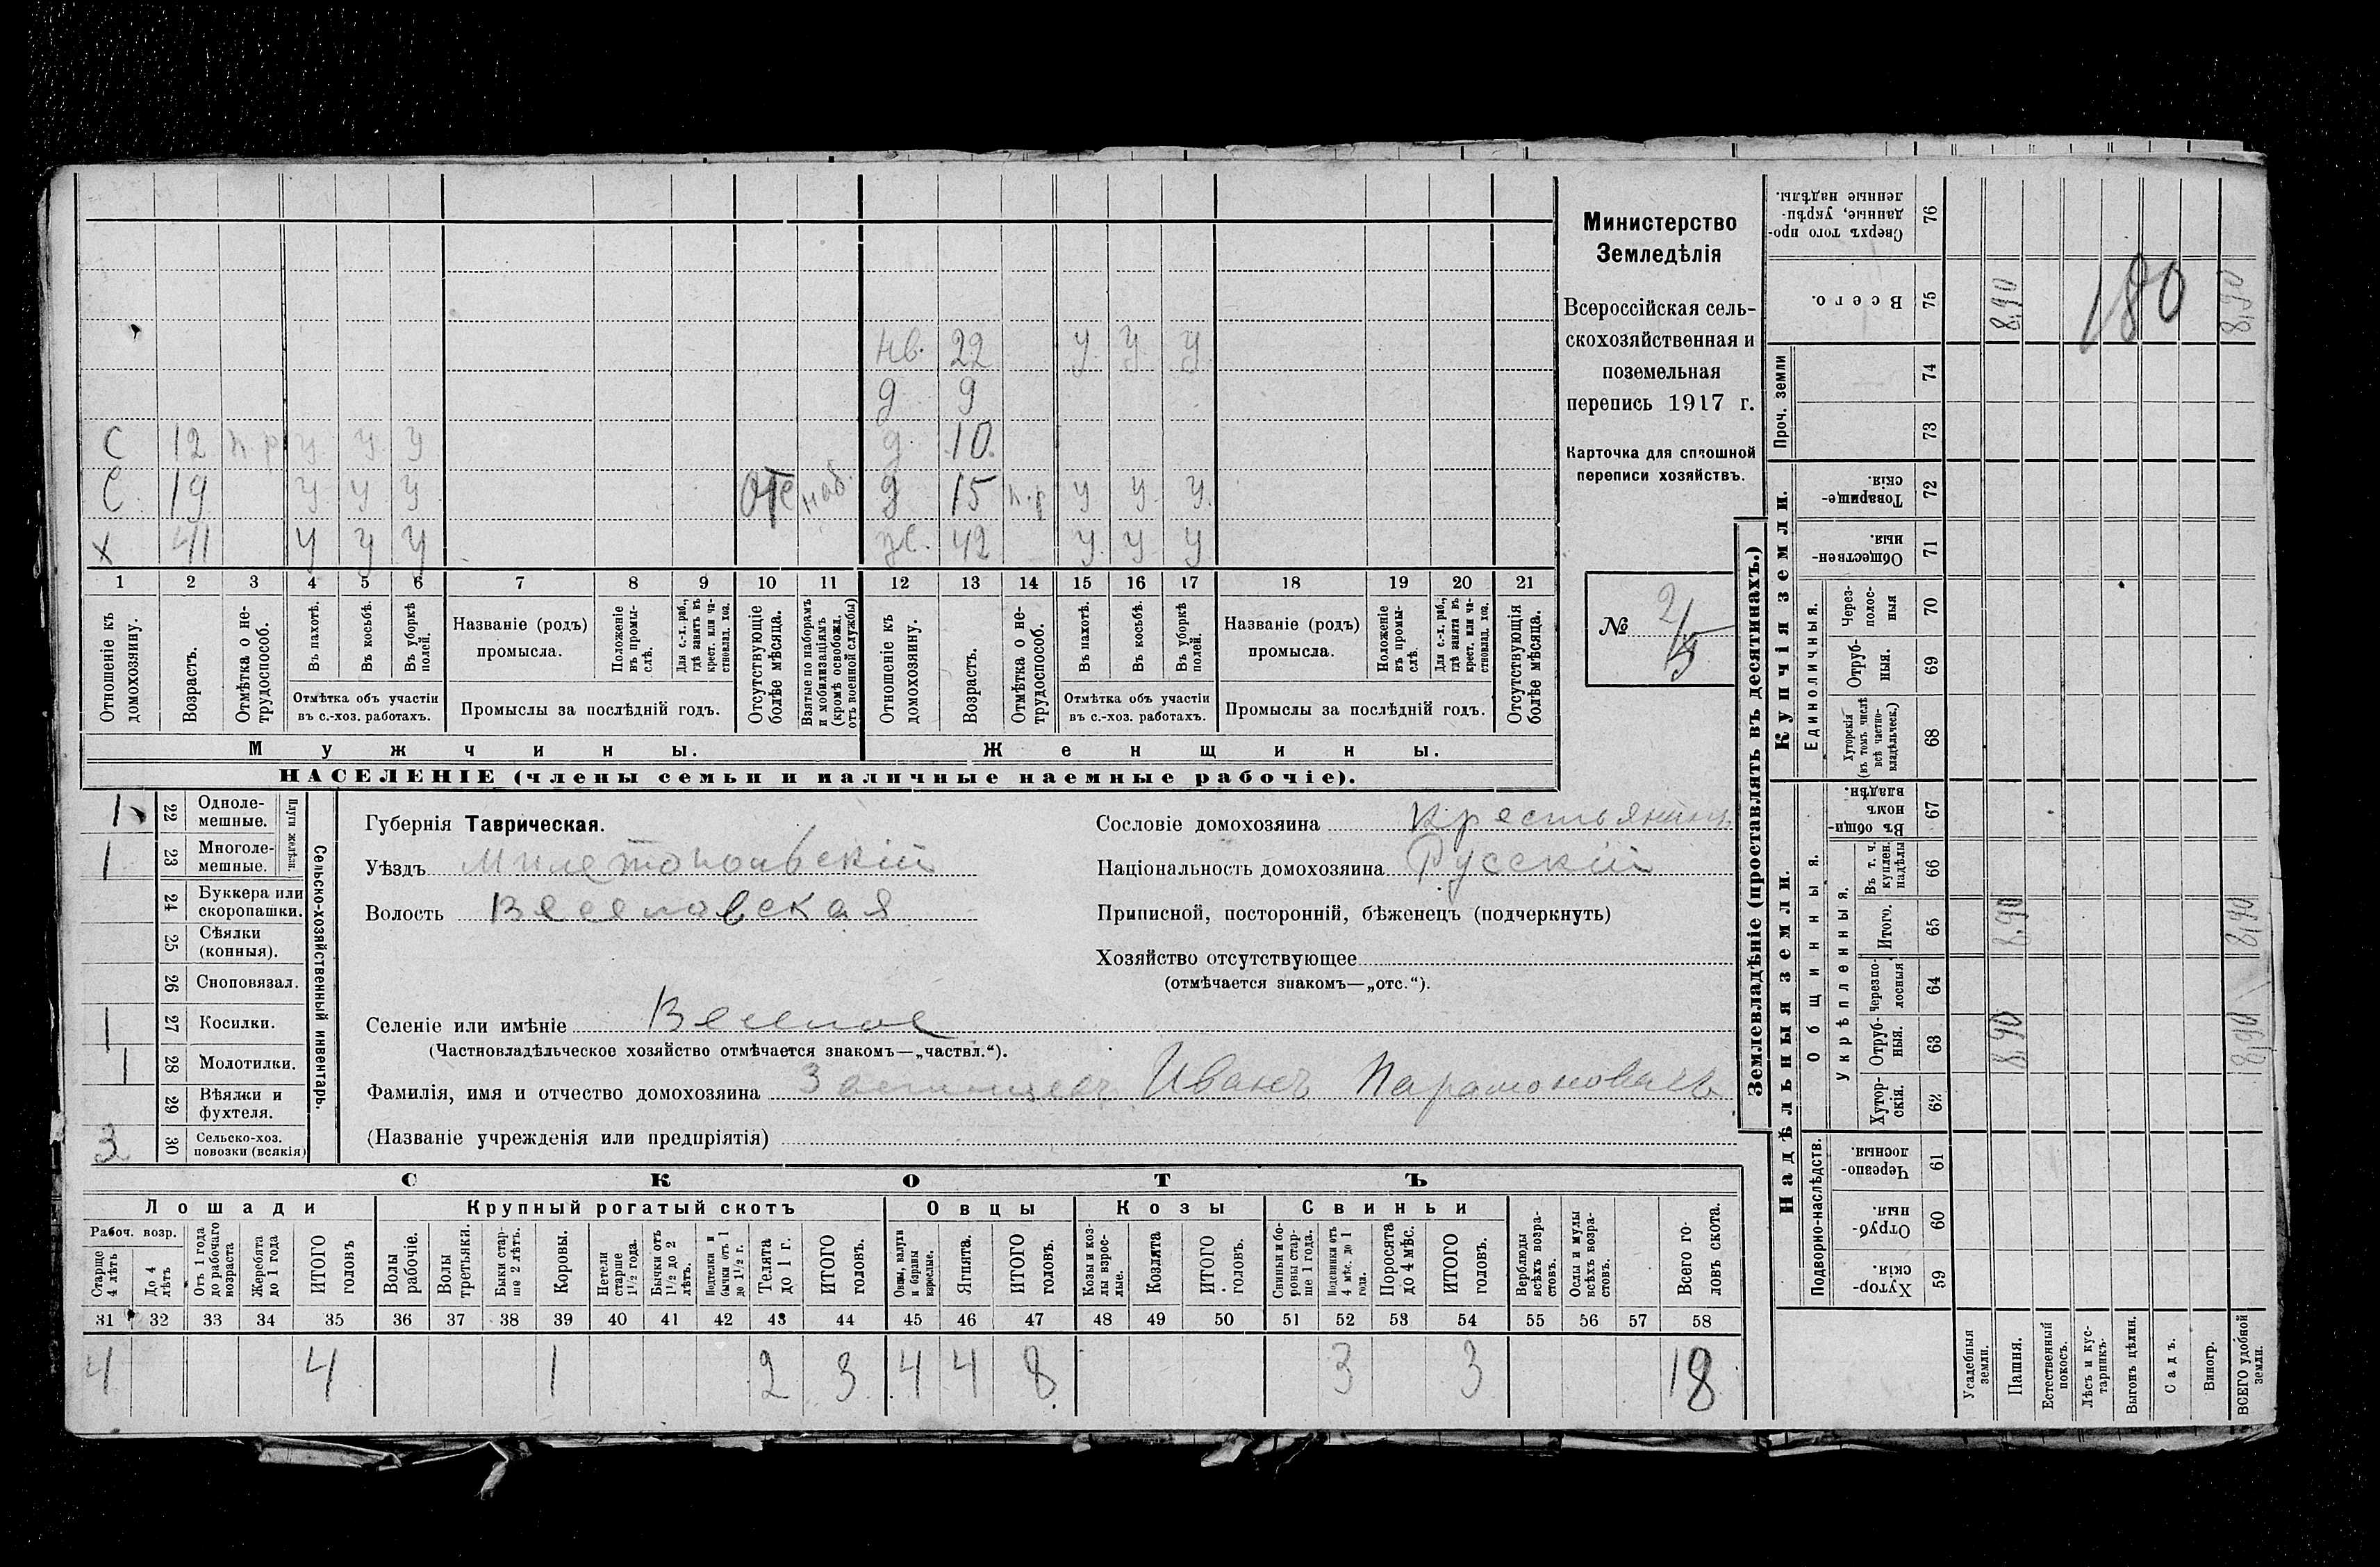 Министерство
Земледѣлія
Всероссійская сель-
скохозяйственная и
поземельная
перепись 1917 г.
Карточка для сплошной
переписи хозяйствъ.
№ 2/5
нв. 22 У У У
д 9
С 12 п.р У У У д. 10.
С. 19 У У У Отс наб. д 15 п.р У У У
Х 41 У У У ж. 42 У У У
1 2 3 4 5 6 7 8 9 10 11 12 13 14 15 16 17 18 19 20 21
Отношеніе къ домохозяину.
Возрастъ.
Отмѣтка о не-трудоспособ.
Въ пахотѣ.
Въ косьбѣ.
Въ уборкѣ полей.
Отмѣтка объ участіи
въ с.-хоз. работахъ.
Названіе (родъ)
промысла.
Положеніе въ промы-слѣ.
Для с.-х. раб., гдѣ занятъ въ крест. или ча-ствовлад. хоз.
Промыслы за послѣдній годъ.
Отсутствующіе болѣе мѣсяца.
Взятые по наборамъ и мобилизаціямъ (кромѣ освобожд. отъ военной службы)
Отношеніе къ домохозяину.
Возрастъ.
Отмѣтка о не-трудоспособ.
Въ пахотѣ.
Въ косьбѣ.
Въ уборкѣ полей.
Отмѣтка объ участіи
въ с.-хоз. работахъ.
Названіе (родъ)
промысла.
Положеніе въ промы-слѣ.
Для с.-х. раб., гдѣ занята въ крест. или ча-ствовлад. хоз.
Промыслы за послѣдній годъ.
Отсутствующія болѣе мѣсяца.
Мужчины. Женщины.
НАСЕЛЕНІЕ (члены семьи и наличные наемные рабочіе).
Сельско-хозяйственный инвентарь.
Плуги желѣзн.
1 22 Одноле-мешные.
1 23 Многоле-мешные.
24 Буккера или скоропашки.
25 Сѣялки (конныя).
26 Сноповязал.
1 27 Косилки.
1 28 Молотилки.
29 Вѣялки и фухтеля.
3 30 Сельско-хоз. повозки (всякія)
Губернія Таврическая.
Уѣздъ Милетопольскій
Волость Веселовская
Селеніе или имѣніе Веселое
(Частновладѣльческое хозяйство отмѣчается знакомъ—„частвл.“).
Фамилія, имя и отчество домохозяина Иванъ Парамоновичъ
(Названіе учрежденія или предпріятія)
Сословіе домохозяина Крестьянинъ
Національность домохозяина Русскій
Приписной, посторонній, бѣженецъ (подчеркнуть)
Хозяйство отсутствующее
(отмѣчается знакомъ—„отс.“).
СКОТЪ
Лошади Крупный рогатый скотъ Овцы Козы Свиньи
Рабоч. возр.
Старше 4 лѣтъ
До 4 лѣтъ
Отъ 1 года до рабочаго возраста
Жеребята до 1 года
ИТОГО головъ
Волы рабочіе.
Волы третьяки.
Быки стар-ше 2 лѣтъ.
Коровы.
Нетели старше 1½ года.
Бычки отъ 1½ до 2 лѣтъ.
Подтелки и бычки отъ 1 до 1½ г.
Телята до 1 г.
ИТОГО головъ.
Овцы, валухи и бараны взрослые.
Ягнята.
ИТОГО головъ.
Козы и коз-лы взрос-лые.
Козлята
ИТОГО головъ.
Свиньи и бо-ровы стар-ше 1 года.
Подсвинки отъ 4 мѣс. до 1 года.
Поросята до 4 мѣс.
ИТОГО головъ.
Верблюды всѣхъ возра-стовъ.
Ослы и мулы всѣхъ возра-стовъ.
Всего го-ловъ скота.
31 32 33 34 35 36 37 38 39 40 41 42 43 44 45 46 47 48 49 50 51 52 53 54 55 56 57 58
4 4 1 2 3 4 4 8 3 3 18
Землевладѣніе (проставлять въ десятинахъ.)
Купчія земли.
Надѣльныя земли.
Проч. земли
Единоличныя.
Общинныя.
Укрѣпленныя.
Подворно-наслѣдств.
76 Сверхъ того про-данные, укрѣп-ленные надѣлы.
75 Всего. 8,90 180 8,90
74
73
72 Товарище-скія.
71 Обществен-ныя.
70 Через-полос-ныя
69 Отруб-ныя.
68 Хуторскія (въ томъ числѣ всѣ частно-владѣльческ.)
67 Въ общи-номъ владѣн.
66 Въ т. ч. куплен. надѣлы
65 Итого. 8,90 8,90
64 Черезпо-лосныя
63 Отруб-ныя. 8,90 8,90
62 Хутор-скія.
61 Черезпо-лосныя.
60 Отруб-ныя.
59 Хутор-скія.
Усадебныя земли.
Пашня.
Естественный покосъ.
Лѣсъ и кус-тарникъ.
Выгонъ цѣлин.
Садъ.
Виногр.
ВСЕГО удобной земли.